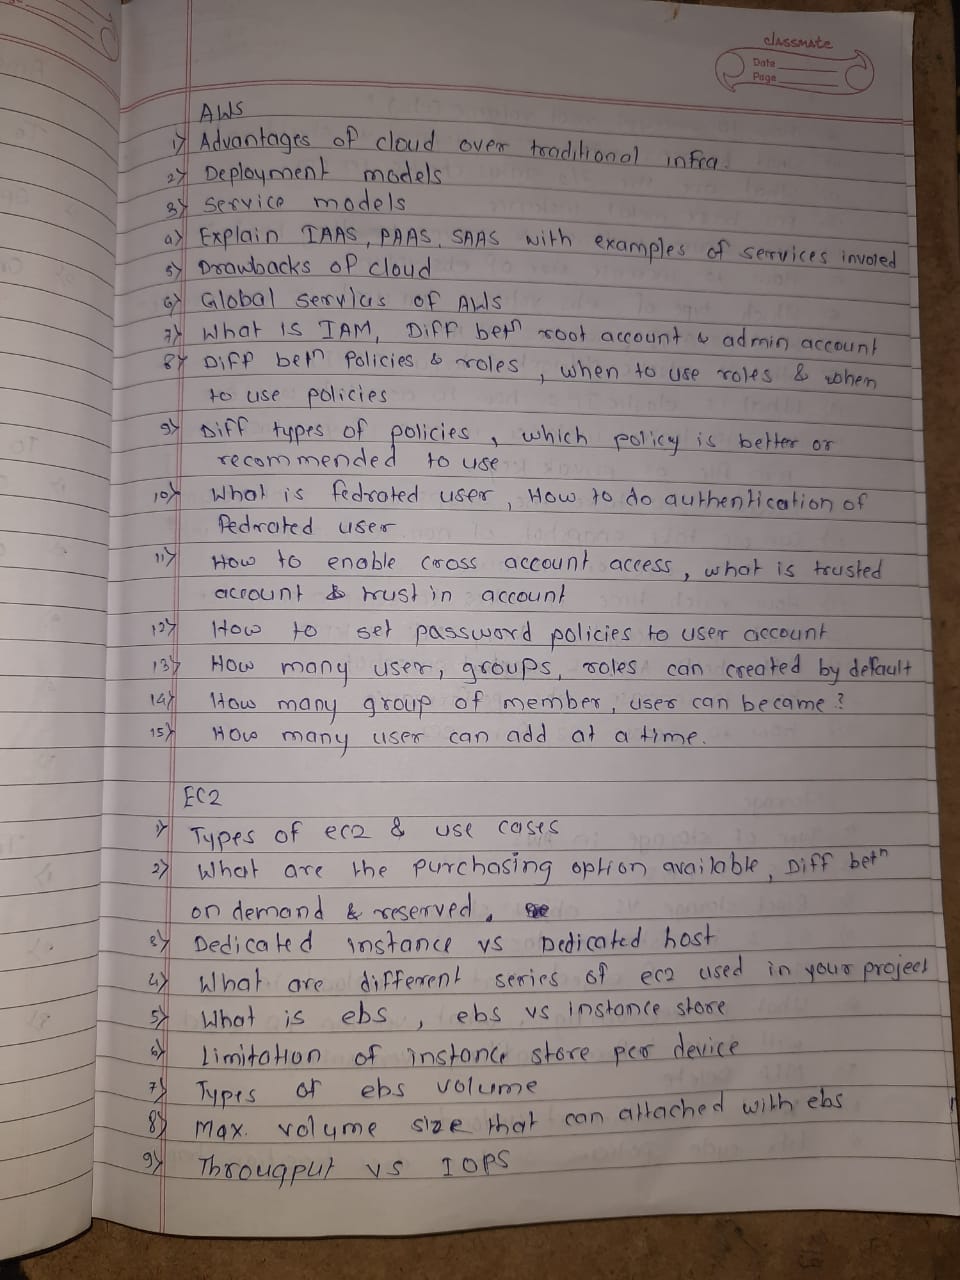 classmate
Date
Page
AWS
1) Advantages of cloud over traditional infra.
2) Deployment models
3) Service models
a) Explain IAAS, PAAS, SAAS with examples of services involed
5) Drawbacks of cloud
6) Global servics of AWS
7) What is IAM, Diff betn root account & admin account
8) Diff betn Policies & roles, when to use roles & when
to use policies
9) Diff types of policies, which policy is better or
recommended to use
10) What is fedrated user, How to do authentication of
fedrated user
11) How to enable cross account access, what is trusted
account & trustin account
12) How to set password policies to user account
13) How many user, groups, roles can created by default
14) How many group of member, user can became?
15) How many user can add at a time.
EC2
1) Types of ec2 & use cases
2) What are the purchasing option available, Diff betn
on demand & reserved.
3) Dedicated instance vs Dedicated host
4) What are different series of ec2 used in your project
5) What is ebs, ebs vs instance store
6) Limitation of instance store per device
7) Types of ebs volume
8) Max. volume size that can attached with ebs
9) Througput vs IOPS